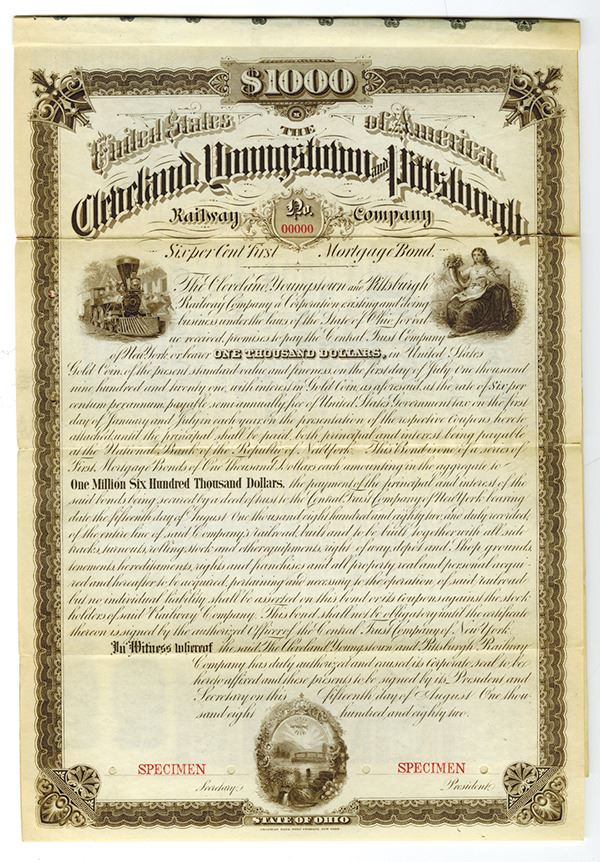 $1000
United States of America.
THE
Cleveland, Youngstown and Pittsburgh
Railway No. Company
00000
Six per Cent First Mortgage Bond.
The Cleveland, Youngstown and Pittsburgh
Railway Company a Corporation existing and doing
business under the laws of the State of Ohio for val-
ue received, promises to pay the Central Trust Company
of New York or bearer ONE THOUSAND DOLLARS, in United States
Gold Coin, of the present standard value and fineness, on the first day of July One thousand
nine hundred and twenty one, with interest in Gold Coin, as aforesaid, at the rate of Six per
centum per annum, payable semi annually, free of United States Government tax on the first
day of January and July in each year, on the presentation of the respective Coupons hereto
attached, until the principal shall be paid, both principal and interest being payable
at the National Bank of the Republic of New York. This Bond is one of a series of
First Mortgage Bonds of One Thousand Dollars each amounting in the aggregate to
One Million Six Hundred Thousand Dollars, the payment of the principal and interest of the
said bonds being secured by a deed of trust to the Central Trust Company of New York bearing
date the fifteenth day of August One thousand eight hundred and eighty two, and duly recorded,
of the entire line of said Company's railroad, built and to be built, together with all side
tracks, turnouts, rolling stock and other equipments, right of way, depot and Shop grounds,
tenements, hereditaments, rights and franchises and all property, real and personal acqui-
red and hereafter to be acquired, pertaining and necessary to the operation of said railroad
but no individual liability shall be asserted on this bond or its coupons against the stock
holders of said Railway Company. This bond shall not be obligatory until the certificate
thereon is signed by the authorized Officer of the Central Trust Company of New York.
In Witness whereof the said The Cleveland Youngstown and Pittsburgh Railway
Company has duly authorized and caused its corporate seal to be
hereto affixed and these presents to be signed by its President and
Secretary on this fifteenth day of August One thou
sand eight hundred and eighty two.
SPECIMEN SPECIMEN
Secretary. President.
STATE OF OHIO